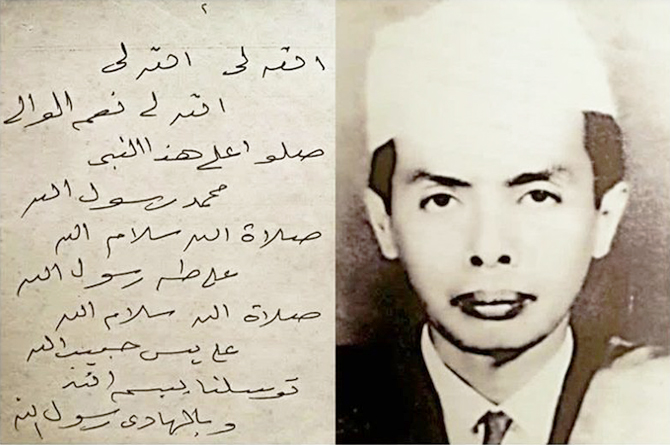 ٢
الله لي الله لي
الله لي نعم الوالي
صلوا على هذا النبي
محمد رسول الله
صلاة الله سلام الله
على طه رسول الله
صلاة الله سلام الله
على يس حبيب الله
توسلنا ببسم الله
وبالهادى رسول الله